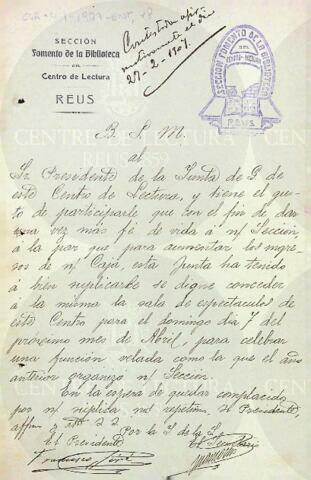 SECCIÓN
Fomento de la Biblioteca
DEL
Centro de Lectura
REUS
Contestada afir
mativamente el dia
27-2-1907.
SECCION FOMENTO DE LA BIBLIOTECA
DEL
CENTRO LECTURA
REUS
B. L. M.
al
Sr Presidente de la Junta de G. de
este Centro de Lectura, y tiene el gus-
to de participarle que con el fin de dar
una vez más fé de vida á n/ Sección
á la par que para aumentar los ingre-
sos de n/ Caja, esta Junta ha tenido
á bien suplicarle se digne conceder
á la misma la sala de espectaculos de
este Centro para el domingo dia 7 del
próximo mes de Abril, para celebrar
una función velada como la que el año
anterior organizó n/ Sección.
En la espera de quedar complacido
por n/ suplica, nos repetimos Sr Presidente,
affmos
Por la J. de la S.
El Presidente
El Secretario
Francisco
CENTRE DE LECTURA
REUS 1859